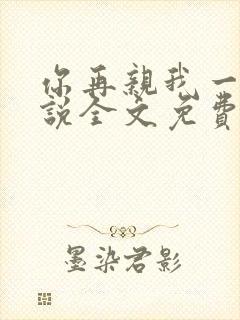 你再親我一
說全文免費
墨染君影